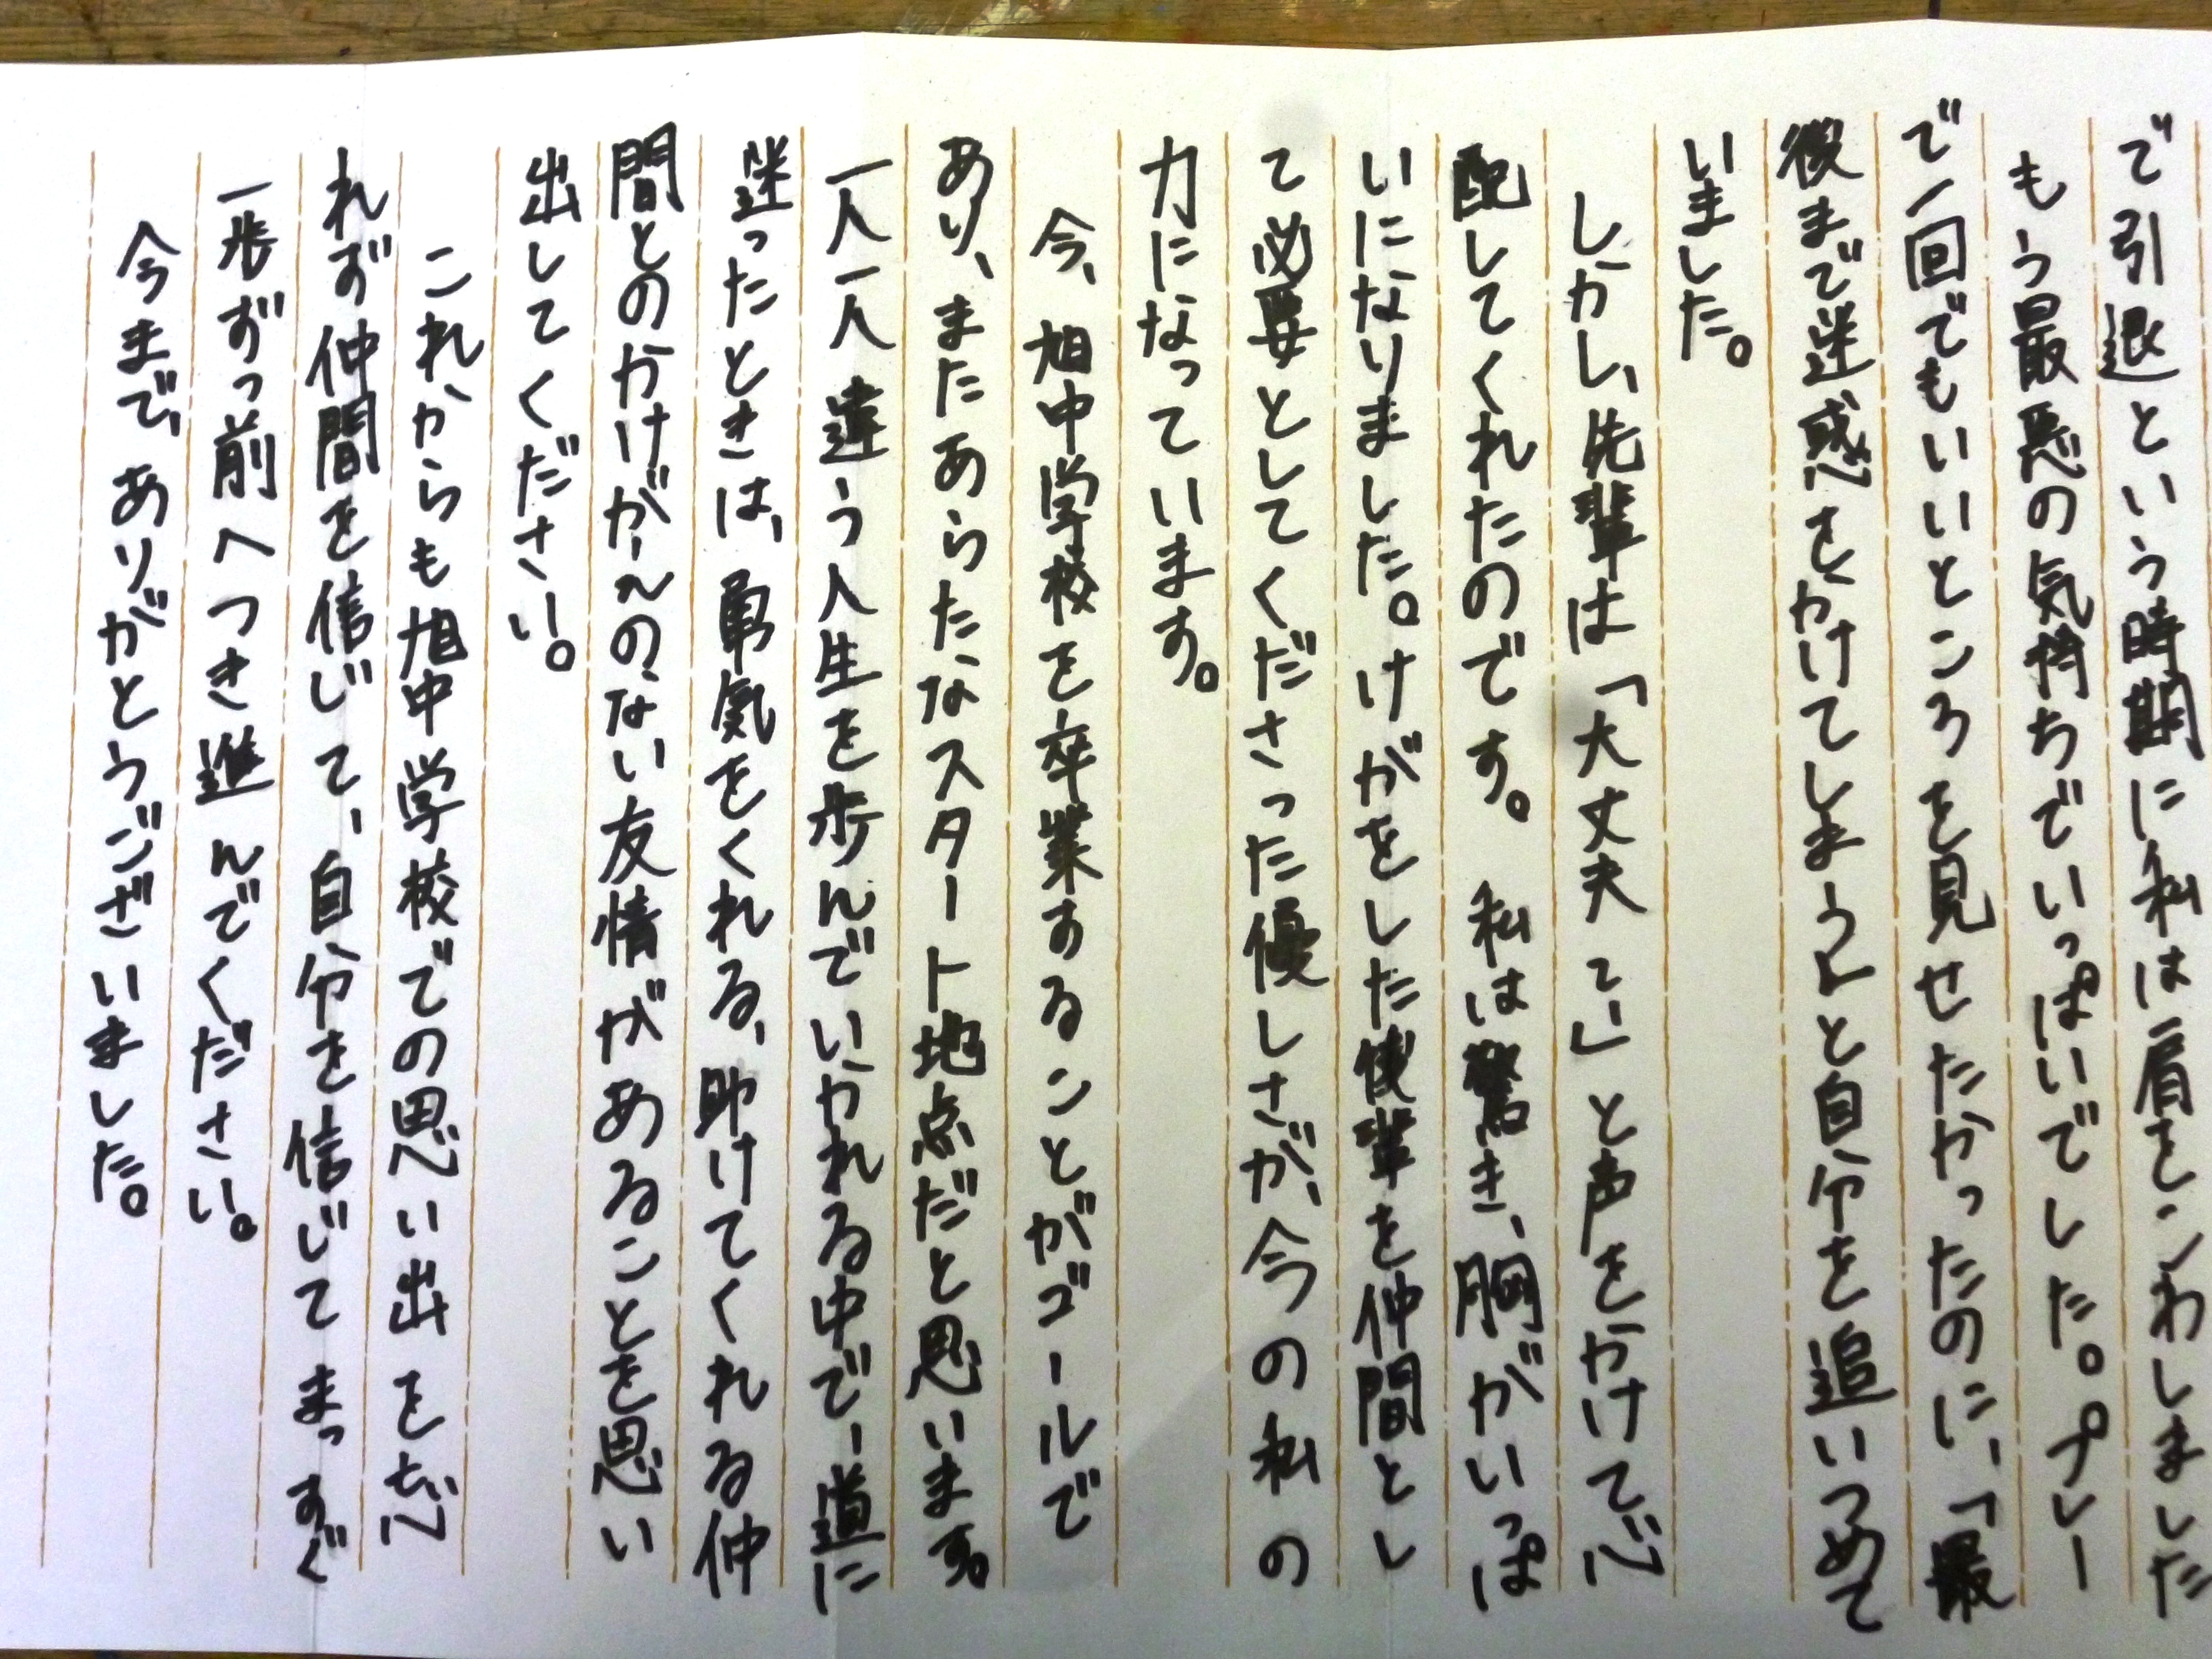 で引退という時期に私は肩をこわしました
もう最悪の気持ちでいっぱいでした。プレー
で一回でもいいところを見せたかったのに、「最
後まで迷惑をかけてしまう」と自分を追いつめて
いました。
しかし、先輩は「大丈夫て」」と声をかけて心
配してくれたのです。私は驚き、胸がいっぱ
いになりました。けがをした後輩を仲間とし
て必要としてくださった優しさが、今の私の
力になっています。
今、旭中学校を卒業することがゴールで
あり、またあらたなスタート地点だと思います。
一人一人違う人生を歩んでいかれる中で、道に
迷ったときは、勇気をくれる、助けてくれる仲
間とのかけがえのない友情があることを思い
出してください。
これからも旭中学校での思い出を忘
れず仲間を信じて、自分を信じてまっすぐ
一歩ずつ前へつき進んでください。
今まで、ありがとうございました。